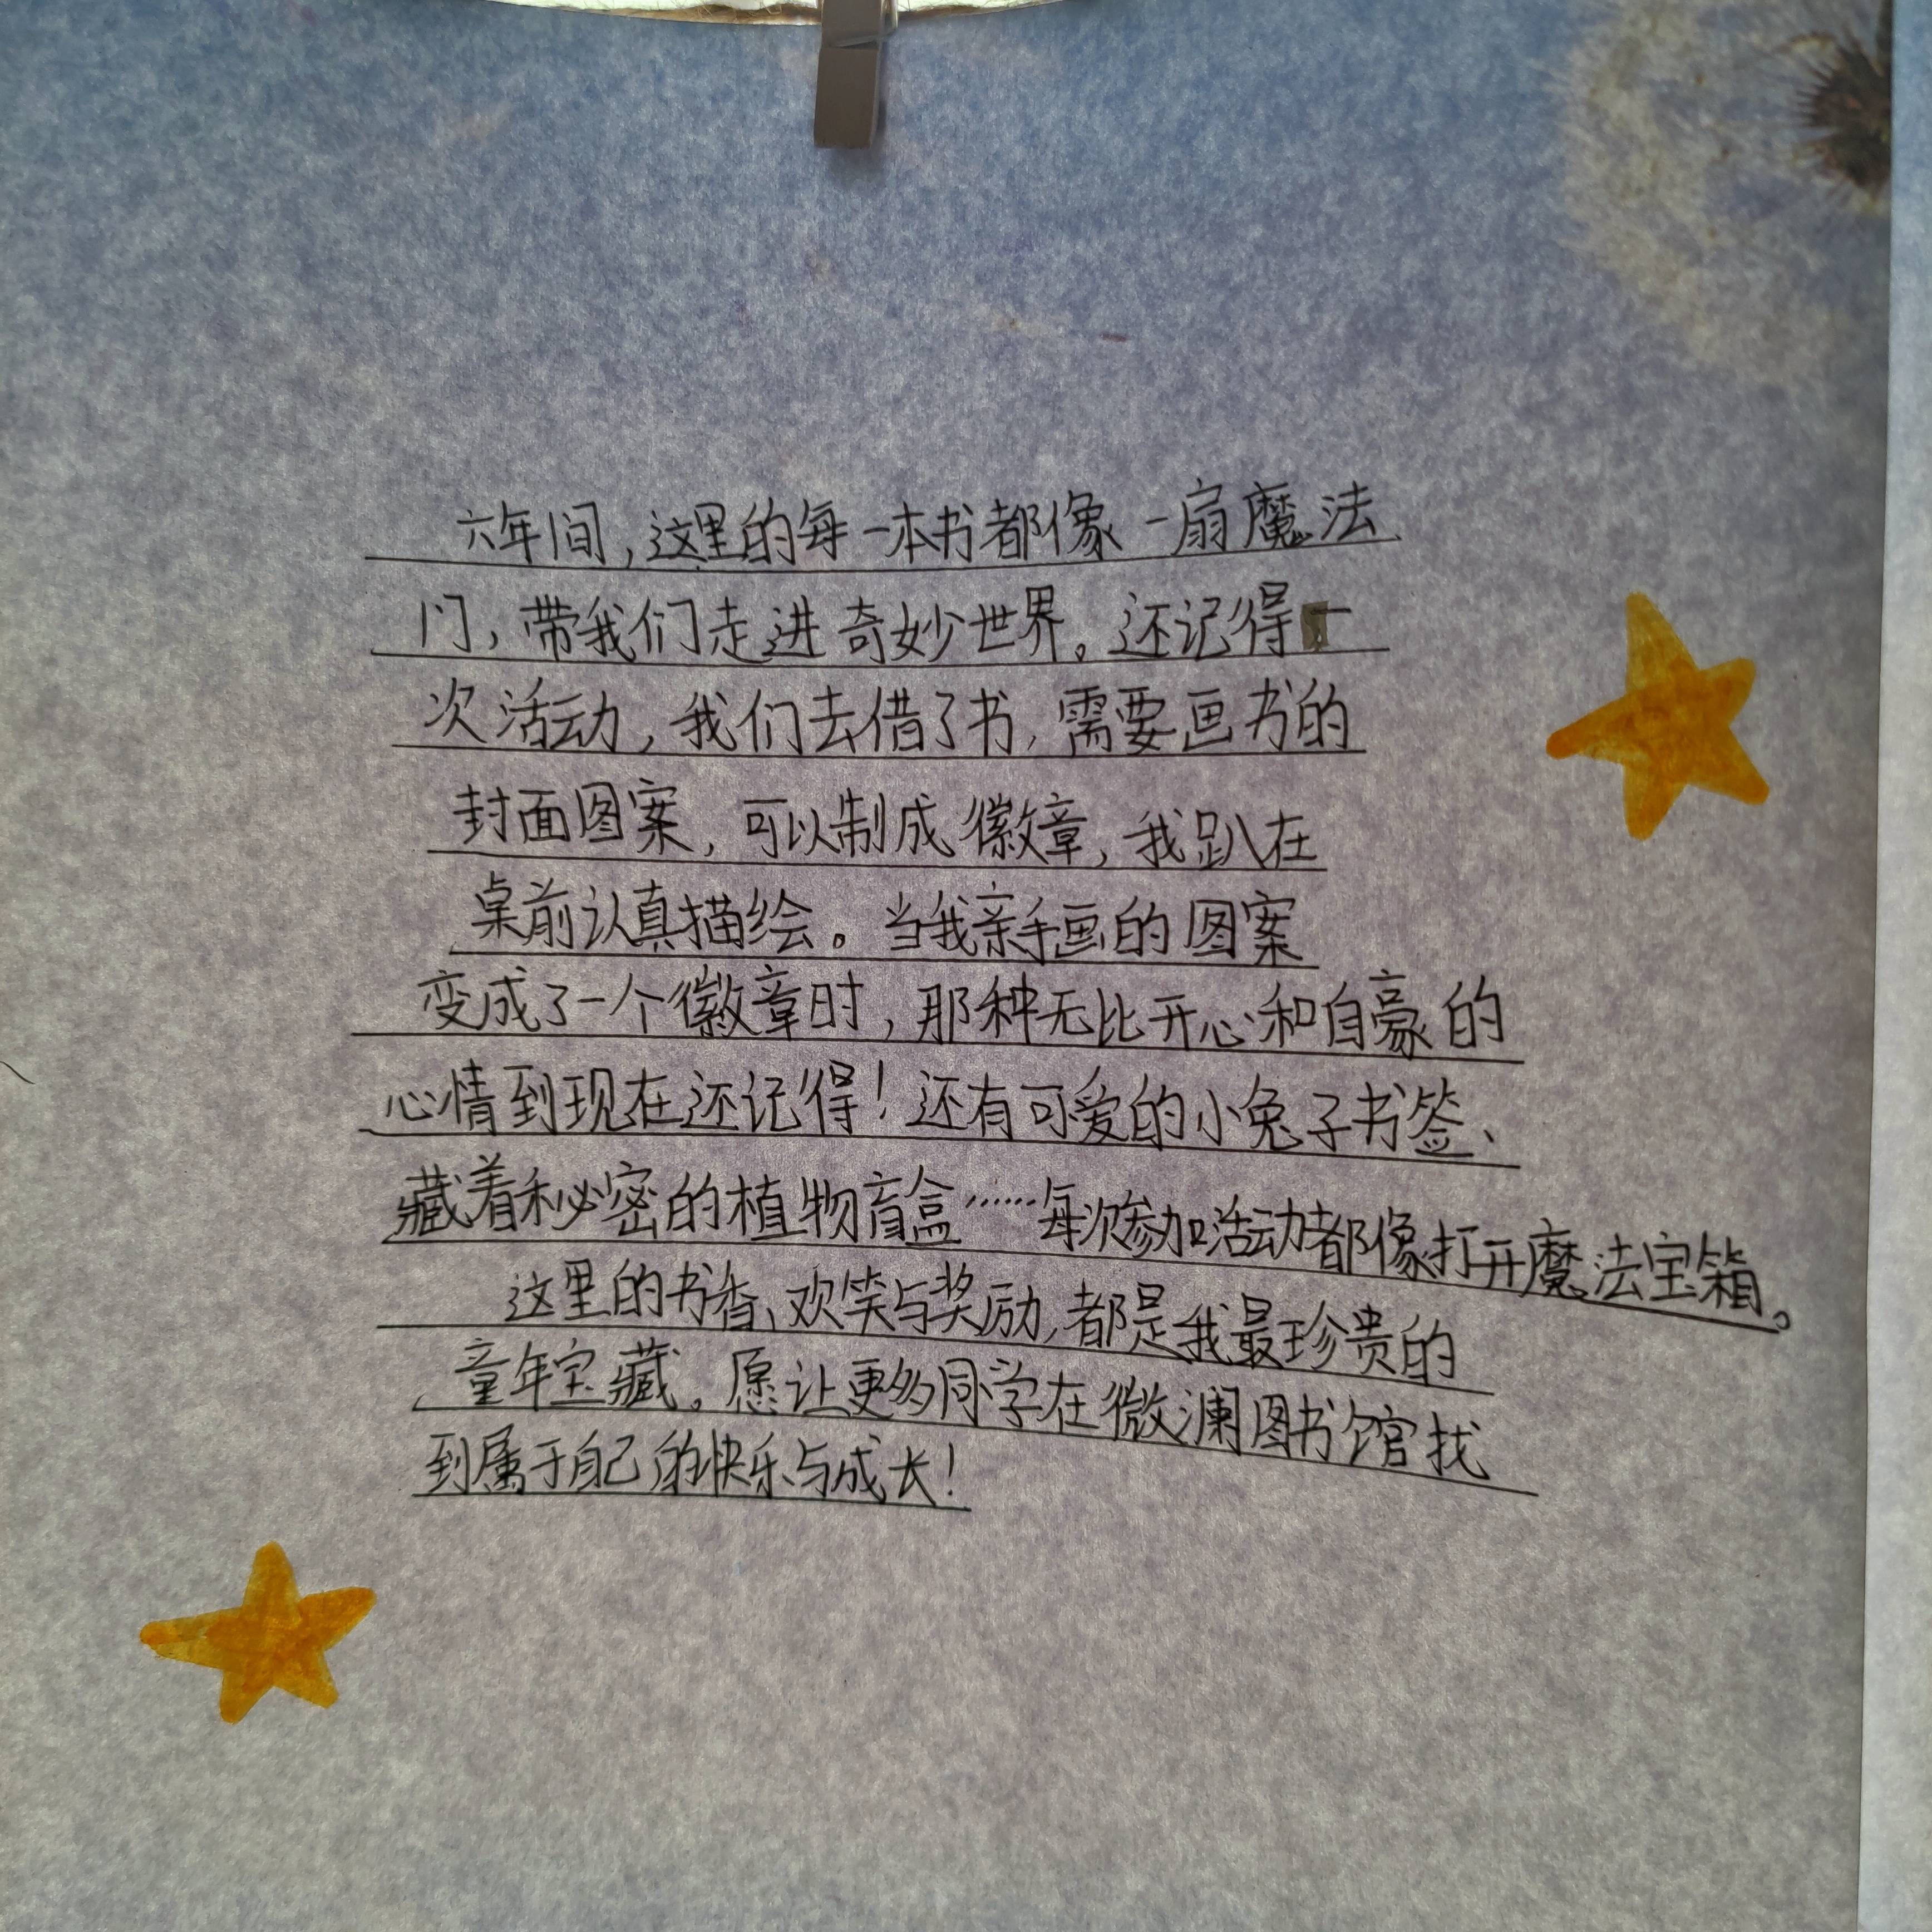 六年间，这里的每一本书都像一扇魔法
门，带我们走进奇妙世界。还记得一
次活动，我们去借了书，需要画书的
封面图案，可以制成徽章，我趴在
桌前认真描绘。当我亲手画的图案
变成了一个徽章时，那种无比开心和自豪的
心情到现在还记得！还有可爱的小兔子书签、
藏着秘密的植物盲盒……每次参加活动都像打开魔法宝箱。
这里的书香、欢笑与奖励，都是我最珍贵的
童年宝藏。愿让更多同学在微澜图书馆找
到属于自己的快乐与成长！